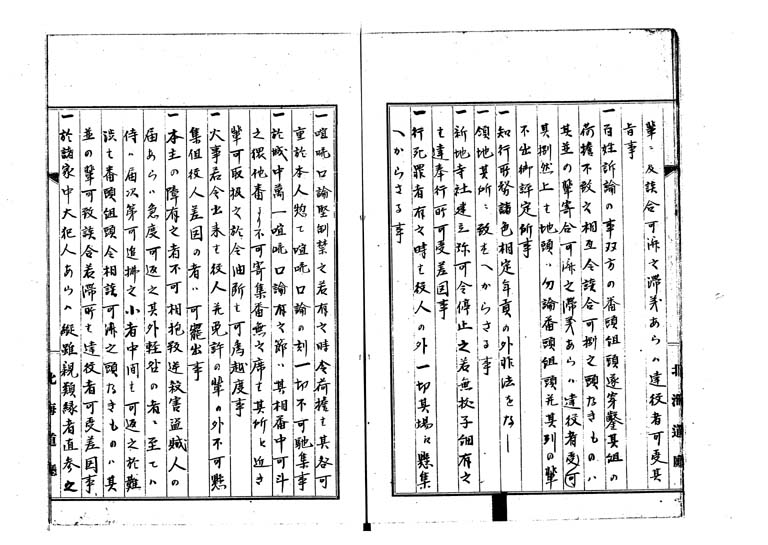 輩ニ及談合可済之滞義あらハ達役者可受其
旨事
一百姓訴論の事双方の番頭組頭遂穿鑿其組の
荷擔不致之相互令談合可捌之頭なきものハ
其並の輩寄合可済之滞義あらハ達役者受可
其捌然上も地頭ハ勿論番頭組頭並其列の輩
不出御評定所事
一知行所務諸色相定年貢の外非法をなし
領地其所ニ致もへからさる事
一新地寺社建立弥可令停止之若無拠子細有之
ハ達奉行所可受差図事
一行死罪者有之時も役人の外一切其場に懸集
へからさる事
一喧嘩口論堅制禁之若有之時令荷擔も其咎可
重於本人惣て喧嘩口論の刻一切不可馳集事
一於城中萬一喧嘩口論有之節ハ其相番中可斗
之猥他番より不可寄集番無之席も其所に近き
輩可取扱之於令油断も可為越度事
一火事若令出来も役人並免許の輩の外不可懸
集但役人差図の者ハ可罷出事
一本主の障有之者不可相抱叛逆殺害盗賊人の
届あらハ急度可返之其外軽咎の者ハ至てハ
侍ハ届次第可追拂之小者中間も可返之於難
渋も番頭組頭令相談可済之頭なきものハ其
並の輩可致談合若滞所も達役者可受差図事
一於諸家中大犯人あらハ縦雖親類縁者直参之
北海道廳
北海道廳